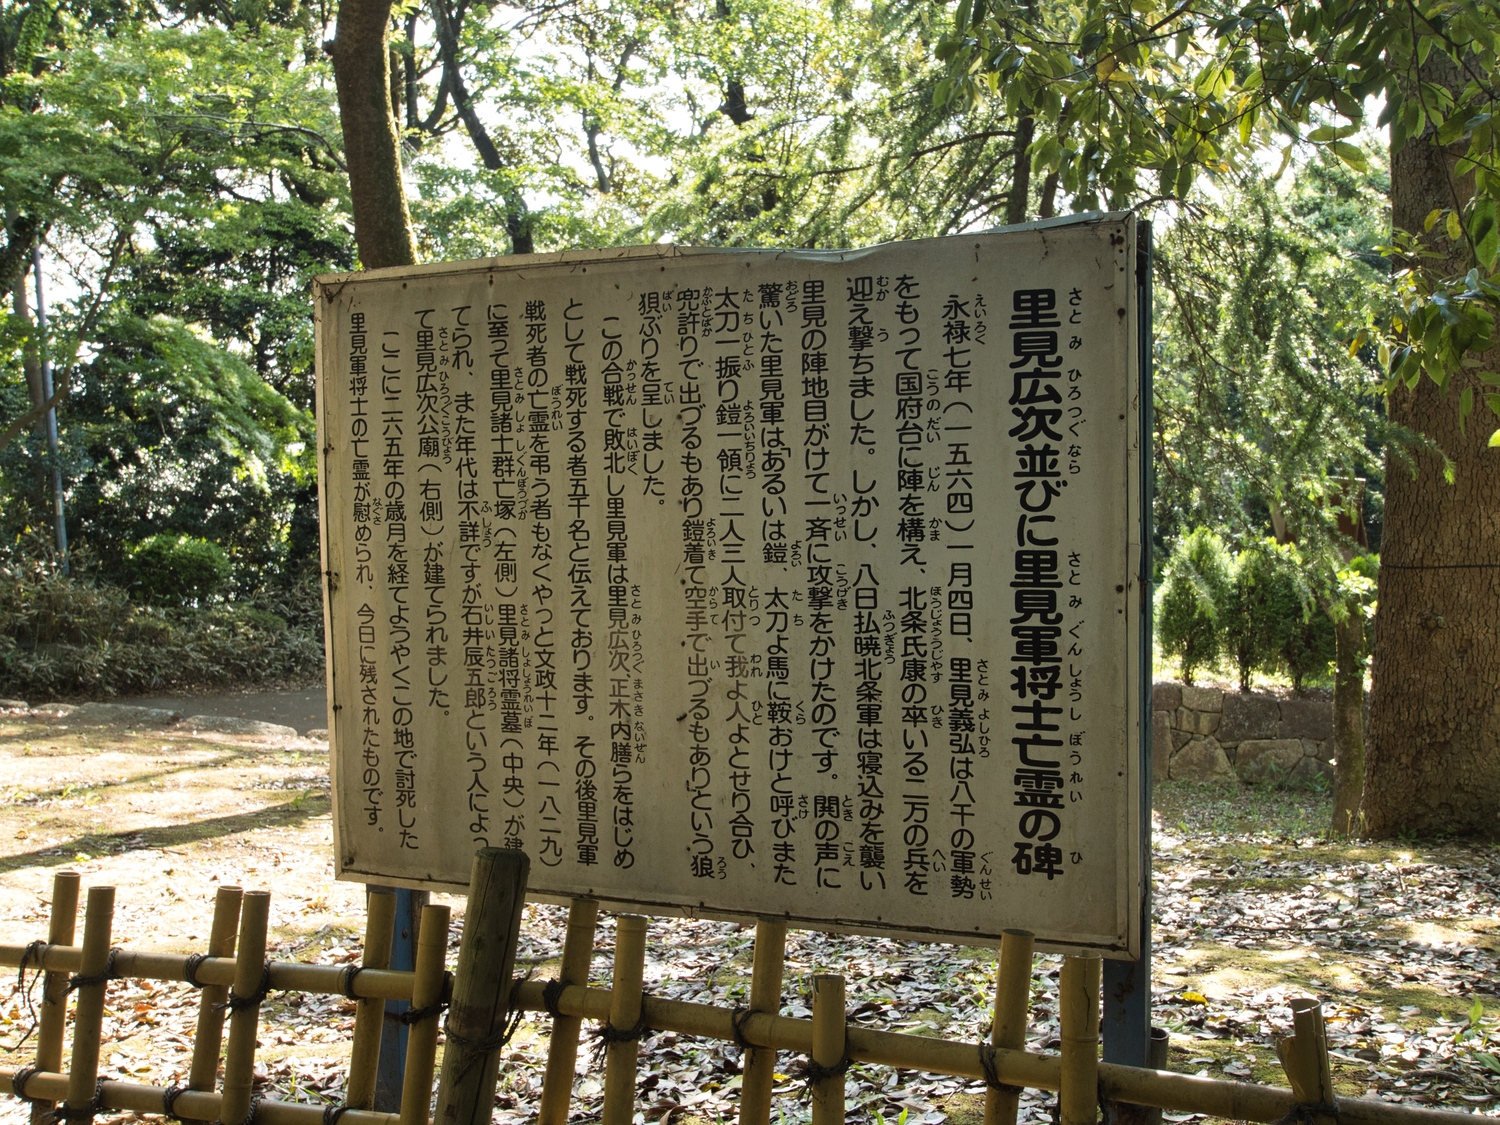 里見広次並びに里見軍将士亡霊の碑
永禄七年(一五六四)一月四日、里見義弘は八千の軍勢
をもって国府台に陣を構え、北条氏康の卒いる二万の兵を
迎え撃ちました。しかし、八日払暁北条軍は寝込みを襲い
里見の陣地目がけて一斉に攻撃をかけたのです。鬨の声に
驚いた里見軍は「あるいは鎧、太刀よ馬に鞍おけと呼びまた
太刀一振り鎧一領に二人三人取付て我よ人よとせり合ひ、
兜許りで出づるもあり鎧着て空手で出づるもあり」という狼
狽ぶりを呈しました。
この合戦で敗北し里見軍は里見広次、正木内膳らをはじめ
として戦死する者五千名と伝えております。その後里見軍
戦死者の亡霊を弔う者もなくやっと文政十二年(一八二九)
に至って里見諸士群亡塚(左側)里見諸将霊墓(中央)が建
てられ、また年代は不詳ですが石井辰五郎という人によっ
て里見広次公廟(右側)が建てられました。
ここに二六五年の歳月を経てようやくこの地で討死した
里見軍将士の亡霊が慰められ、今日に残されたものです。